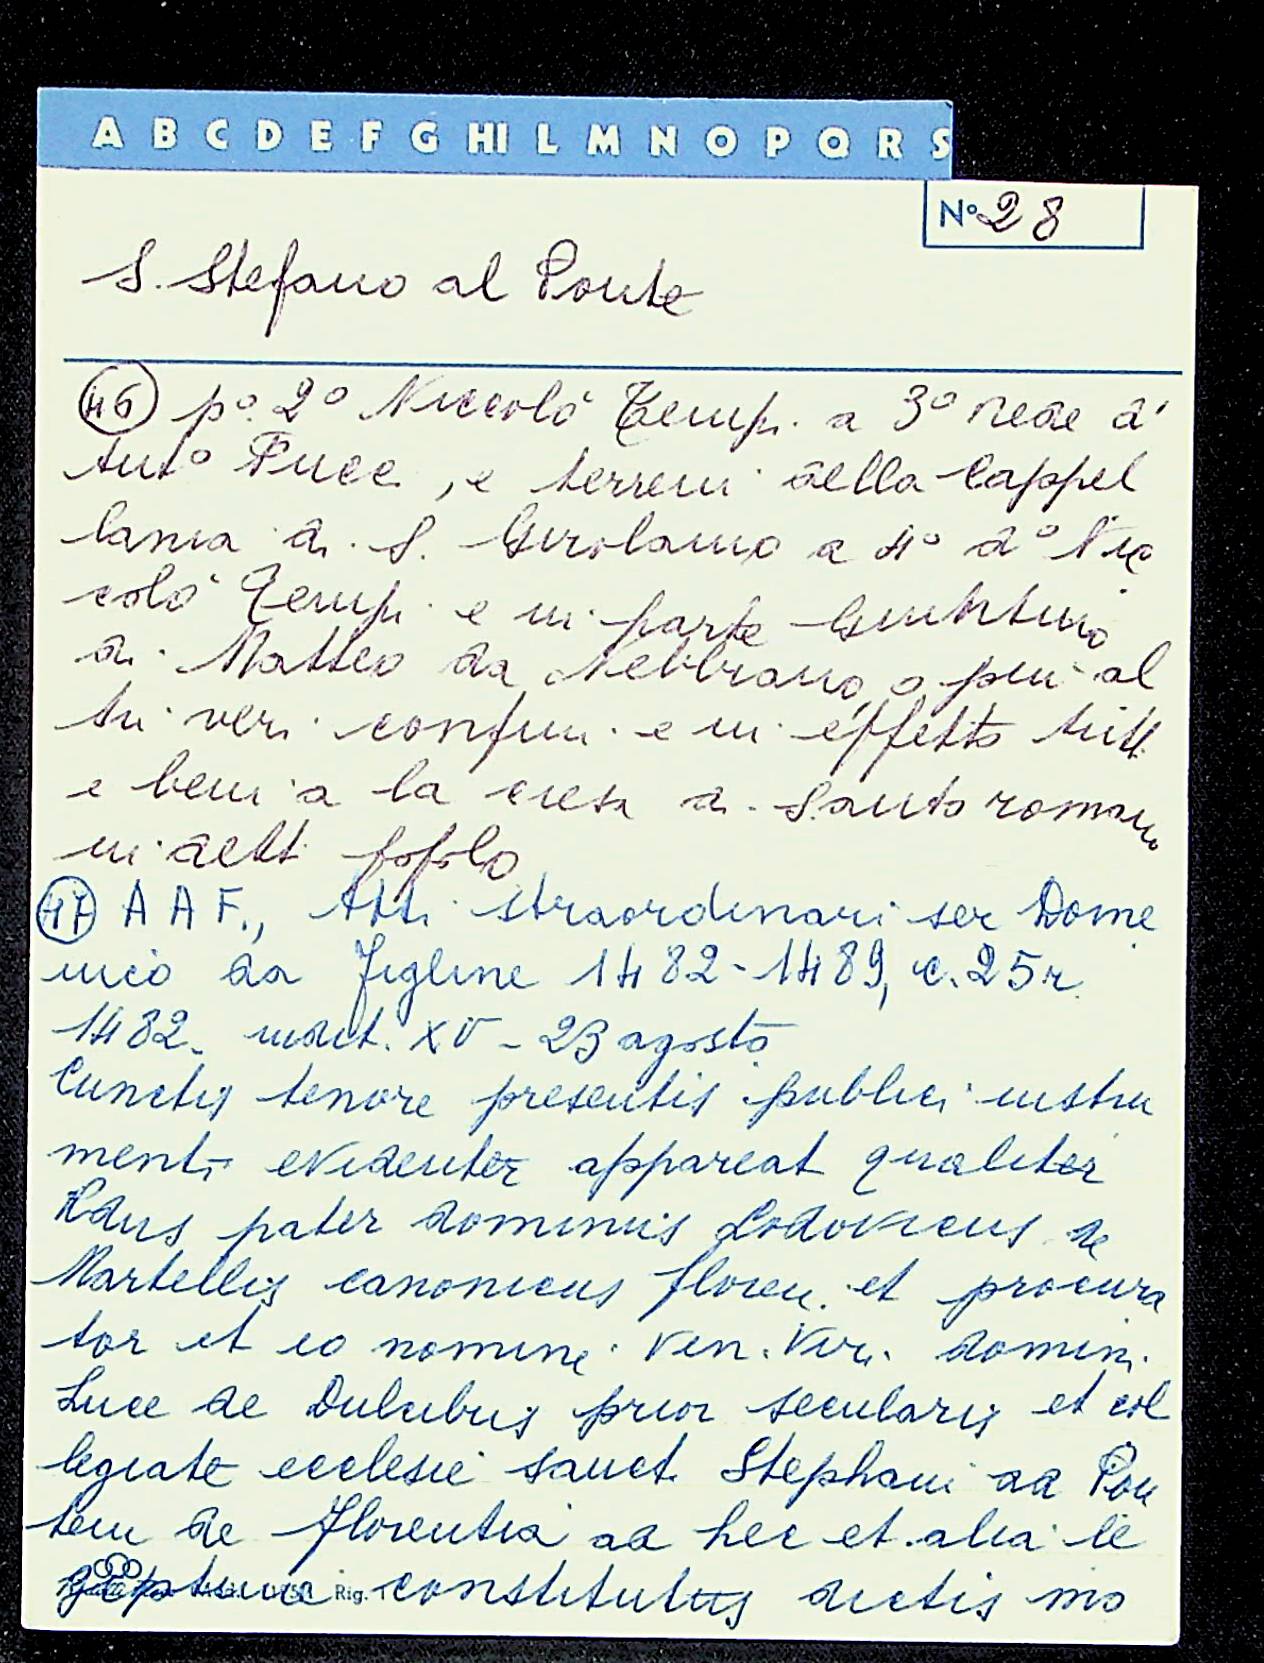 A B C D E F G HI L M N O P Q R S
N° 28
S. Stefano al Ponte
46 p° 2° Niccolò Tempi a 3° rede d'
Ant° Pucci, e terreni della cappel
lania di S. Girolamo a 4° d° Nic
colò Tempi e in parte
di Matteo da Nebbiano, o piu al
tri veri confini e in effetto tutti
e beni a la cresa di Santo romano
in detti popolo
47 A A F., Atti straordinari ser Dome
nico da Figline 1482-1489, c. 25r
1482. indit. XV - 23 agosto
Cunctis tenore presentis publici instru
menti evidenter appareat qualiter
Rdus pater dominus Lodovicus de
Martellis canonicus floren. et procura
tor et eo nomine Ven. Viri domini
Luce de Dulcibus prior secularis et col
legiate ecclesie sancti Stephani ad Pon
tem de Florentia ad hec et alia le
giptime constitutus dictis mo
Rig.